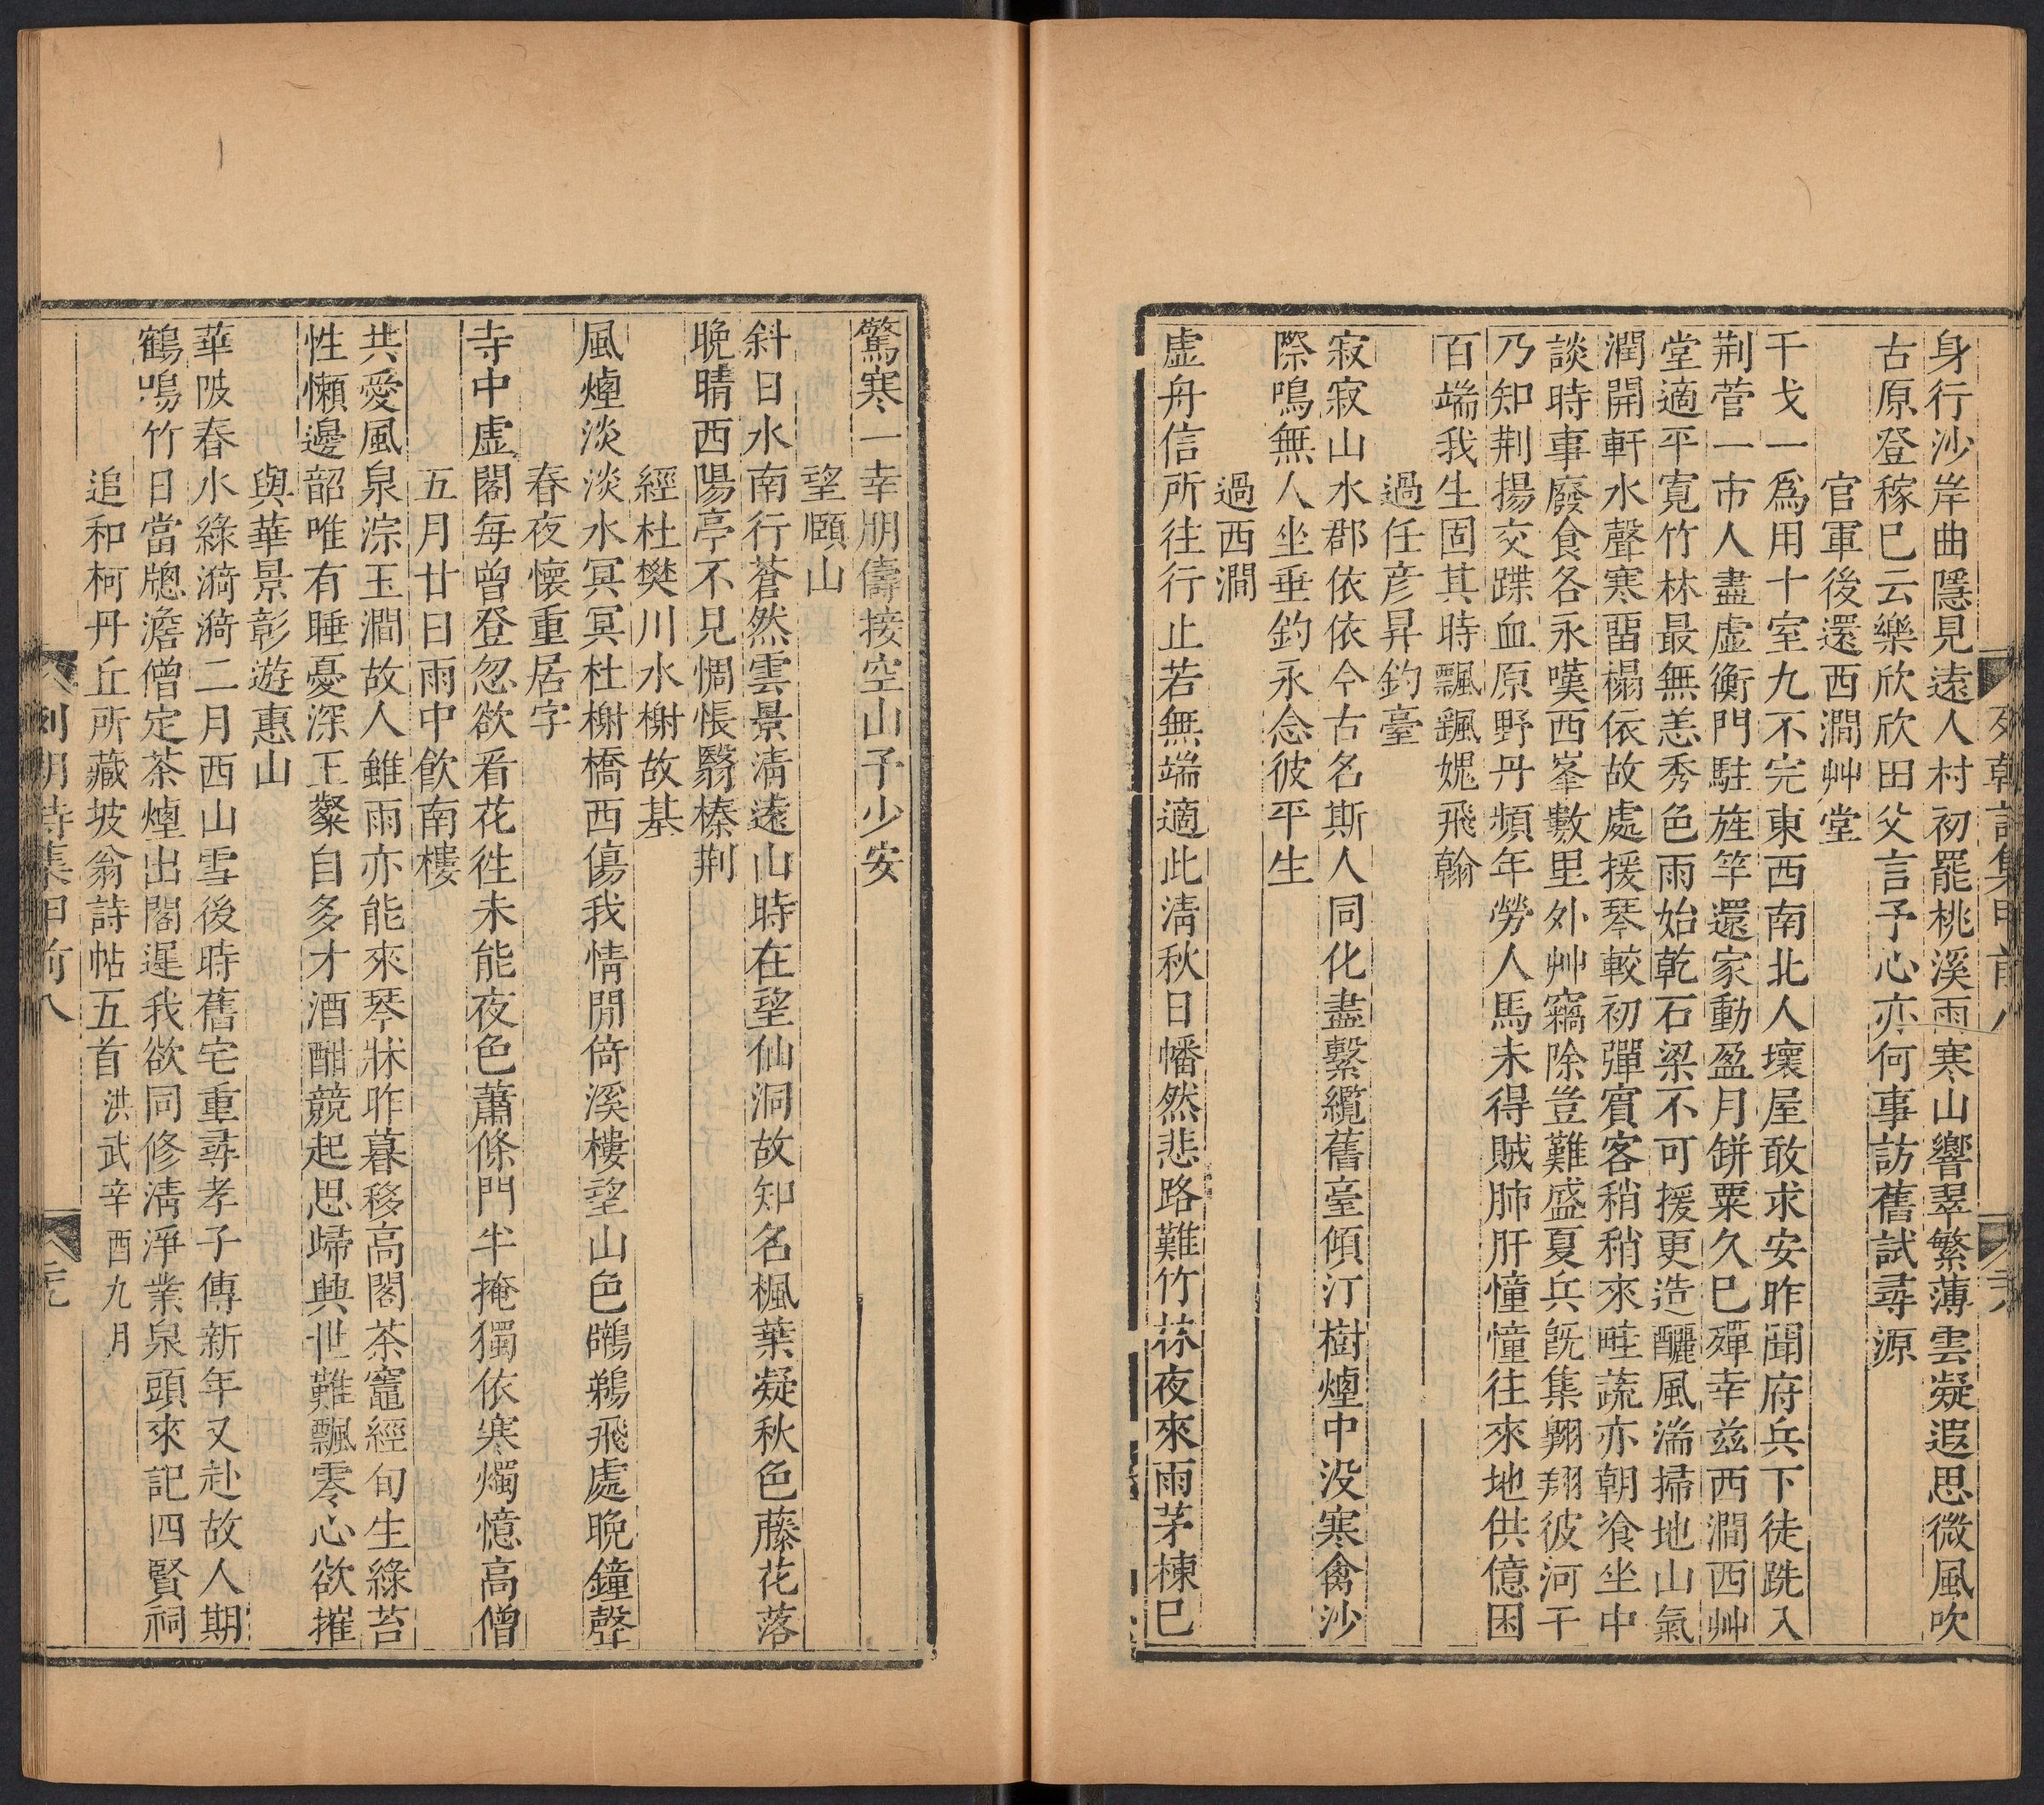 列朝詩集甲前八
身行沙岸曲隱見遠人村初罷桃溪雨寒山響翠繁薄雲凝遐思微風吹
古原登稼巳云樂欣欣田父言予心亦何事訪舊試尋源
官軍後還西澗艸堂
干戈一爲用十室九不完東西南北人壞屋敢求安昨聞府兵下徒跣入
荆菅一市人盡虛衡門駐旌竿還家動盈月缾粟久巳殫幸兹西澗西艸
堂適平寛竹林最無恙秀色雨始乾石梁不可援更造釃風湍掃地山氣
潤開軒水聲寒畱榻依故處援琴較初彈賔客稍稍來畦蔬亦朝飡坐中
談時事廢食各永嘆西峯數里外艸竊除豈難盛夏兵旣集翺翔彼河干
乃知荆揚交蹀血原野丹頻年勞人馬未得賊肺肝憧憧往來地供億困
百端我生固其時飄颻媿飛翰
過任彦昇釣臺
寂寂山水郡依依今古名斯人同化盡繫纜舊臺傾汀樹煙中没寒禽沙
際鳴無人坐垂釣永念彼平生
過西澗
虛舟信所往行止若無端適此淸秋日幡然悲路難竹林夜來雨茅棟巳
驚寒一幸朋儔接空山予少安
望頤山
斜日水南行蒼然雲景淸遠山時在望仙洞故知名楓葉凝秋色藤花落
晚晴西陽亭不見惆悵翳榛荆
經杜樊川水榭故基
風煙淡淡水冥冥杜榭橋西傷我情閒倚溪樓望山色鷓鵜飛處晚鐘聲
春夜懷重居字
寺中虛閣每曾登忽欲看花徃未能夜色蕭條門半掩獨依寒燭憶高僧
五月廿日雨中飮南樓
共愛風泉淙玉澗故人雖雨亦能來琴牀昨暮移高閣茶竈經旬生綠苔
性懶邊韶唯有睡憂深王粲自多才酒酣競起思歸興世難飄零心欲摧
與華景彰遊惠山
華陂春水綠漪漪二月西山雪後時舊宅重尋孝子傳新年又赴故人期
鶴鳴竹日當牕澹僧定茶煙出閣遲我欲同修淸淨業泉頭來記四賢祠
追和柯丹丘所藏坡翁詩帖五首洪武辛酉九月
列朝詩集甲前八